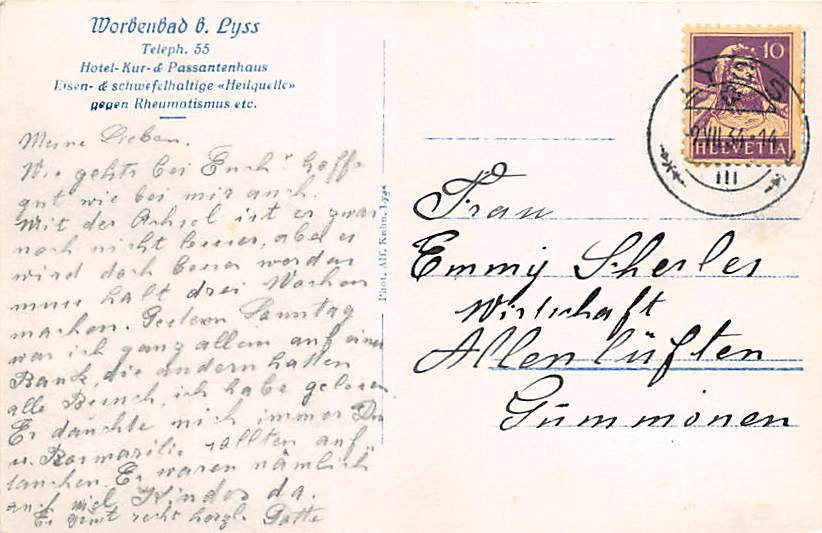 Worbenbad b. Lyss
Teleph. 55
Hotel-Kur- & Passantenhaus
Eisen- & schwefelhaltige «Heilquelle»
gegen Rheumatismus etc.
Meine Lieben.
Wie gehts bei Euch? hoffe
gut wie bei mir auch.
Mit der Achsel ist es zwar
noch nicht besser, aber es
wird doch besser werden
muss halt drei Wochen
machen. Gestern Sonntag
war ich ganz allein auf einer
Bank, die andern hatten
alle Besuch, ich habe gelesen
Es dünkte mich immer Du
u. Rosmarili sollten auf
tauchen. Es waren nämlich
auch viel Kinder da.
Es grüsst recht herzl. Gotte
Phot. Alf. Kuhn, Lyss
10
HELVETIA
LYSS
9.VII.34-14
III
Frau
Emmy Scherler
Wirtschaft
Allenlüften
Gümmönen